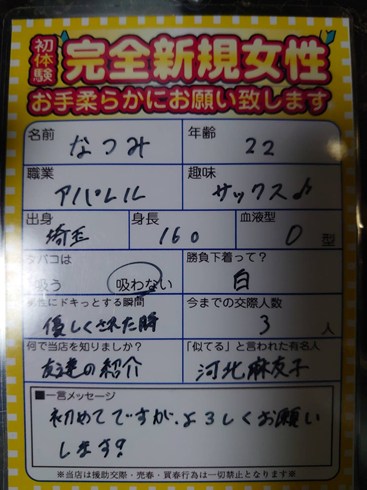 初体験
完全新規女性
お手柔らかにお願い致します
名前 なつみ 年齢 22
職業 アパレル 趣味 サックス♪
出身 埼玉 身長 160 血液型 O 型
タバコは 吸う 吸わない 勝負下着って? 白
異性にドキっとする瞬間 優しくされた時 今までの交際人数 3 人
何で当店を知りましたか? 友達の紹介 「似てる」と言われた有名人 河北麻友子
■一言メッセージ
初めてですが、よろしくお願い
します?
※当店は援助交際・売春・買春行為は一切禁止となります※